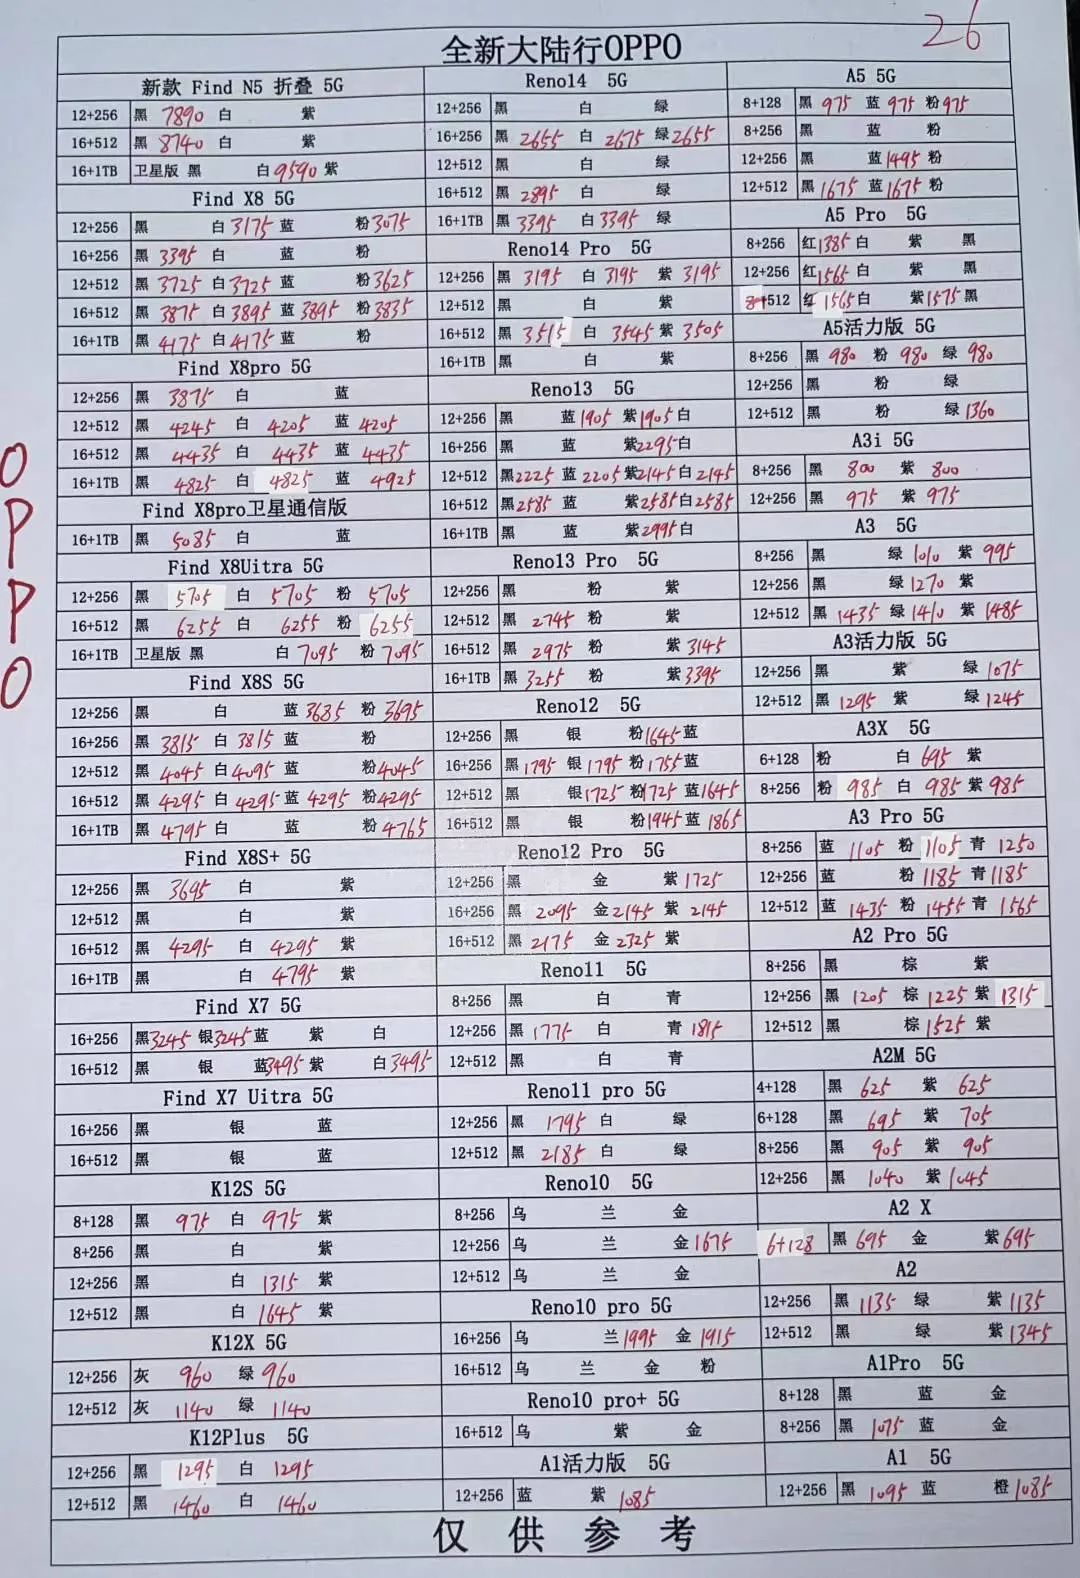 26
全新大陆行OPPO
新款 Find N5 折叠 5G
12+256 黑 7890 白 紫
16+512 黑 8740 白 紫
16+1TB 卫星版 黑 白 9590 紫
Find X8 5G
12+256 黑 白 3175 蓝 粉 3075
16+256 黑 3395 白 蓝 粉
12+512 黑 3725 白 3725 蓝 粉 3625
16+512 黑 3875 白 3895 蓝 3895 粉 3835
16+1TB 黑 4175 白 4175 蓝 粉
Find X8pro 5G
12+256 黑 3875 白 蓝
12+512 黑 4245 白 4205 蓝 4205
16+512 黑 4435 白 4435 蓝 4435
16+1TB 黑 4825 白 4825 蓝 4925
Find X8pro卫星通信版
16+1TB 黑 5085 白 蓝
Find X8Uitra 5G
12+256 黑 5705 白 5705 粉 5705
16+512 黑 6255 白 6255 粉 6255
16+1TB 卫星版 黑 白 7095 粉 7095
Find X8S 5G
12+256 黑 白 蓝 3635 粉 3695
16+256 黑 3815 白 3815 蓝 粉
12+512 黑 4045 白 4095 蓝 粉 4045
16+512 黑 4295 白 4295 蓝 4295 粉 4295
16+1TB 黑 4795 白 蓝 粉 4765
Find X8S+ 5G
12+256 黑 3695 白 紫
12+512 黑 白 紫
16+512 黑 4295 白 4295 紫
16+1TB 黑 白 4795 紫
Find X7 5G
16+256 黑 3245 银 3245 蓝 紫 白
16+512 黑 银 蓝 3495 紫 白 3495
Find X7 Uitra 5G
16+256 黑 银 蓝
16+512 黑 银 蓝
K12S 5G
8+128 黑 975 白 975 紫
8+256 黑 白 紫
12+256 黑 白 1315 紫
12+512 黑 白 1645 紫
K12X 5G
12+256 灰 960 绿 960
12+512 灰 1140 绿 1140
K12Plus 5G
12+256 黑 1295 白 1295
12+512 黑 1460 白 1460
Reno14 5G
12+256 黑 白 绿
16+256 黑 2655 白 2675 绿 2655
12+512 黑 白 绿
16+512 黑 2895 白 绿
16+1TB 黑 3395 白 3395 绿
Reno14 Pro 5G
12+256 黑 3195 白 3195 紫 3195
12+512 黑 白 紫
16+512 黑 3515 白 3545 紫 3505
16+1TB 黑 白 紫
Reno13 5G
12+256 黑 蓝 1905 紫 1905 白
16+256 黑 蓝 紫 2295 白
12+512 黑 2225 蓝 2205 紫 2145 白 2145
16+512 黑 2585 蓝 紫 2585 白 2585
16+1TB 黑 蓝 紫 2995 白
Reno13 Pro 5G
12+256 黑 粉 紫
12+512 黑 2745 粉 紫
16+512 黑 2975 粉 紫 3145
16+1TB 黑 3255 粉 紫 3395
Reno12 5G
12+256 黑 银 粉 1645 蓝
16+256 黑 1795 银 1795 粉 1755 蓝
12+512 黑 银 1725 粉 1725 蓝 1645
16+512 黑 银 粉 1945 蓝 1865
Reno12 Pro 5G
12+256 黑 金 紫 1725
16+256 黑 2095 金 2145 紫 2145
16+512 黑 2175 金 2325 紫
Reno11 5G
8+256 黑 白 青
12+256 黑 1775 白 青 1815
12+512 黑 白 青
Reno11 pro 5G
12+256 黑 1795 白 绿
12+512 黑 2185 白 绿
Reno10 5G
8+256 乌 兰 金
12+256 乌 兰 金 1675
12+512 乌 兰 金
Reno10 pro 5G
16+256 乌 兰 1995 金 1915
16+512 乌 兰 金 粉
Reno10 pro+ 5G
16+512 乌 紫 金
A1活力版 5G
12+256 蓝 紫 1085
A5 5G
8+128 黑 975 蓝 975 粉 975
8+256 黑 蓝 粉
12+256 黑 蓝 1495 粉
12+512 黑 1675 蓝 1675 粉
A5 Pro 5G
8+256 红 1385 白 紫 黑
12+256 红 1565 白 紫 黑
+512 红 1565 白 紫 1575 黑
A5活力版 5G
8+256 黑 980 粉 980 绿 980
12+256 黑 粉 绿
12+512 黑 粉 绿 1360
A3i 5G
8+256 黑 800 紫 800
12+256 黑 975 紫 975
A3 5G
8+256 黑 绿 1010 紫 995
12+256 黑 绿 1270 紫
12+512 黑 1435 绿 1410 紫 1485
A3活力版 5G
12+256 黑 紫 绿 1075
12+512 黑 1295 紫 绿 1245
A3X 5G
6+128 粉 白 695 紫
8+256 粉 985 白 985 紫 985
A3 Pro 5G
8+256 蓝 1105 粉 1105 青 1250
12+256 蓝 粉 1185 青 1185
12+512 蓝 1435 粉 1455 青 1565
A2 Pro 5G
8+256 黑 棕 紫
12+256 黑 1205 棕 1225 紫 1315
12+512 黑 棕 1525 紫
A2M 5G
4+128 黑 625 紫 625
6+128 黑 695 紫 705
8+256 黑 905 紫 905
12+256 黑 1040 紫 1045
A2 X
6+128 黑 695 金 紫 695
A2
12+256 黑 1135 绿 紫 1135
12+512 黑 绿 紫 1345
A1Pro 5G
8+128 黑 蓝 金
8+256 黑 1075 蓝 金
A1 5G
12+256 黑 1095 蓝 橙 1085
仅供参考
OPPO